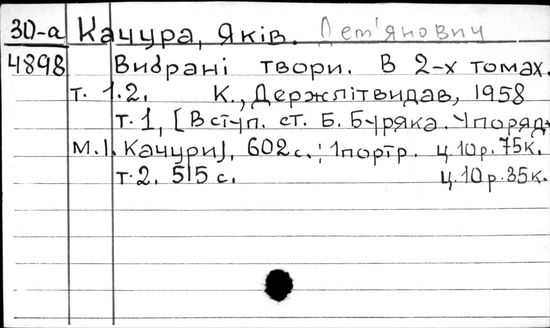 30-а Качура, Яків. Дем'янович
4898 Вибрані твори. В 2-х томах.
т. 1.2. К., Держлітвидав, 1958
т. 1, [Вступ. ст. Б. Буряка. Упоряд.
М.І. Качури], 602 с.; 1 портр. ц. 10 р. 75к.
т. 2. 515 с. ц. 10 р. 35к.